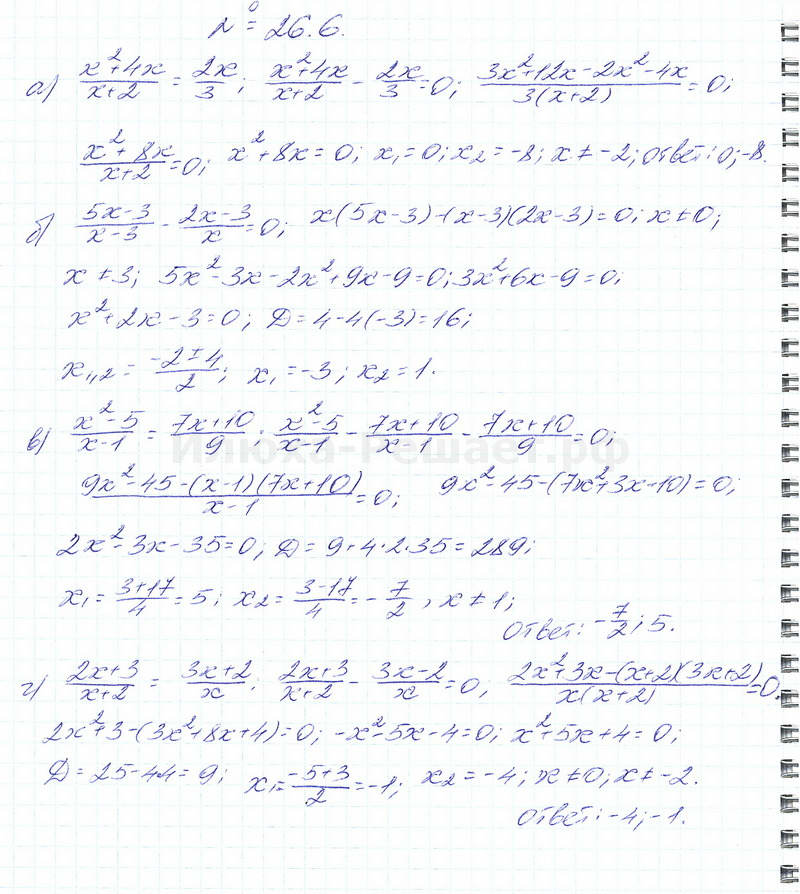 № 26.6.
а) (x²+4x)/(x+2) = 2x/3; (x²+4x)/(x+2) - 2x/3 = 0; (3x²+12x-2x²-4x)/(3(x+2)) = 0;
(x²+8x)/(x+2) = 0; x²+8x=0; x₁=0; x₂=-8; x≠-2; ответ: 0; -8.
б) (5x-3)/(x-3) - (2x-3)/x = 0; x(5x-3)-(x-3)(2x-3)=0; x≠0;
x≠3; 5x²-3x-2x²+9x-9=0; 3x²+6x-9=0;
x²+2x-3=0; D=4-4(-3)=16;
x₁,₂ = (-2±4)/2; x₁=-3; x₂=1.
в) (x²-5)/(x-1) = (7x+10)/9; (x²-5)/(x-1) - (7x+10)/(x-1) - (7x+10)/9 = 0;
Илюха-Решает.рф
(9x²-45-(x-1)(7x+10))/(x-1) = 0; 9x²-45-(7x²+3x-10)=0;
2x²-3x-35=0; D=9+4·2·35=289;
x₁ = (3+17)/4 = 5; x₂ = (3-17)/4 = -7/2, x≠1;
ответ: -7/2; 5.
г) (2x+3)/(x+2) = (3x+2)/x; (2x+3)/(x+2) - (3x-2)/x = 0; (2x²+3x-(x+2)(3x+2))/(x(x+2)) = 0;
2x²+3-(3x²+8x+4)=0; -x²-5x-4=0; x²+5x+4=0;
D=25-4·4=9; x₁ = (-5+3)/2 = -1; x₂=-4; x≠0; x≠-2.
ответ: -4; -1.